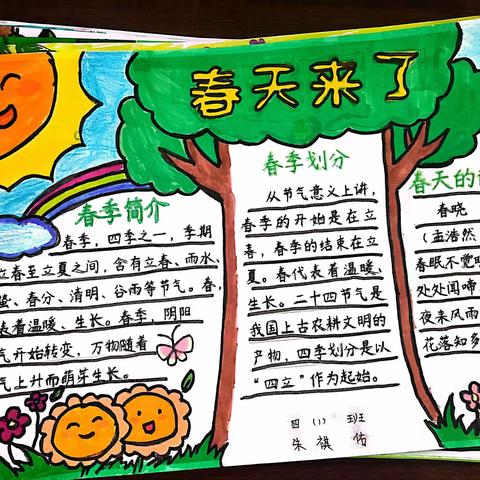 春天来了
春季简介
春季，四季之一，季期
立春至立夏之间，含有立春、雨水、
蛰、春分、清明、谷雨等节气。春，
表着温暖、生长。春季，阴阳
气开始转变，万物随着
气上升而萌芽生长。
春季划分
从节气意义上讲，
春季的开始是在立
春，春季的结束在立
夏。春代表着温暖、
生长。二十四节气是
我国上古农耕文明的
产物，四季划分是以
“四立”作为起始。
四（1）班
朱祺佑
春天的
春晓
（孟浩然
春眠不觉晓
处处闻啼
夜来风雨
花落知多